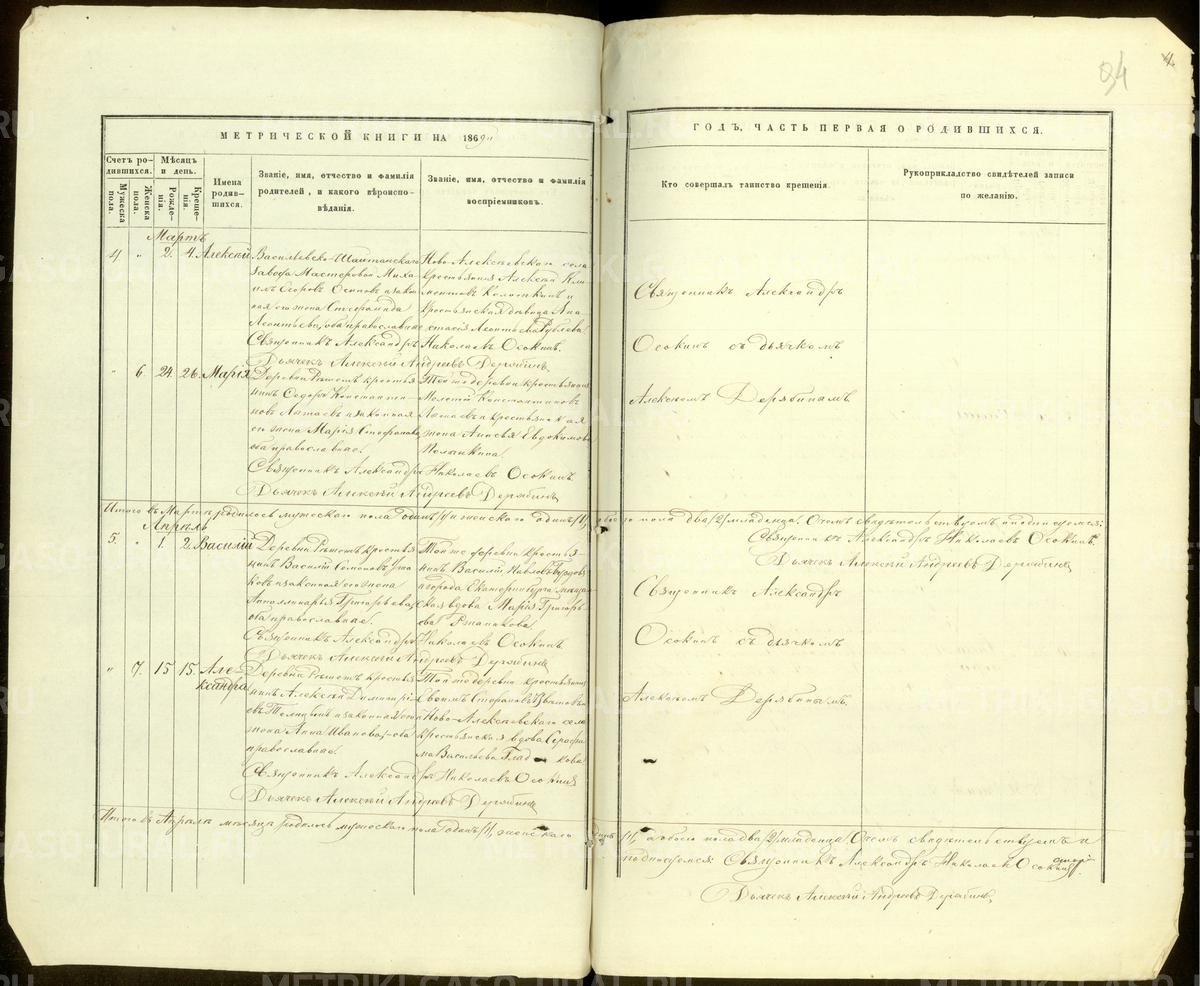 94
МЕТРИЧЕСКОЙ КНИГИ НА 1869й
ГОДЪ, ЧАСТЬ ПЕРВАЯ О РОДИВШИХСЯ.
Счетъ родившихся.
Мужеска пола.
Женска пола.
Мѣсяцъ и день.
Рожденія.
Крещенія.
Имена родившихся.
Званіе, имя, отчество и фамилія
родителей, и какого вѣроиспо-
вѣданія.
Званіе, имя, отчество и фамилія
воспріемниковъ.
Кто совершалъ таинство крещенія.
Рукоприкладство свидѣтелей записи
по желанію.
Мартъ
4. " 2. 4. Алексѣй
Васильевско-Шайтанскаго
завода Мастеровой Миха-
илъ Егоровъ Осиповъ и закон-
ная его жена Степанида
Леонтьева, оба православные
Ново-Алексѣевскаго села
крестьянинъ Алексѣй Кли-
ментовъ Колоткинъ и
крестьянская дѣвица Ана-
стасія Леонтьева Рублева.
Священникъ Александръ Николаевъ Осокинъ.
Дьячекъ Алексѣй Андреевъ Дерябинъ
Священникъ Александръ
Осокинъ съ дьячкомъ
Алексѣемъ Дерябинымъ
" 6. 24. 26. Марія
Деревни Рѣшетъ крестья-
нинъ Сидоръ Константи-
новъ и законная
его жена Марія Стефанова
оба православные.
Той же деревни крестьянинъ
Константиновъ
и крестьянская
жена Евдокимова
Священникъ Александръ Николаевъ Осокинъ
Дьячекъ Алексѣй Андреевъ Дерябинъ
Итого въ Мартѣ родилось мужескаго пола одинъ /1/ и женскаго одинъ /1/, обоего пола два /2/ младенца. О чемъ свидѣтельствуемъ и подписуемся:
Священникъ Александръ Николаевъ Осокинъ.
Дьячекъ Алексѣй Андреевъ Дерябинъ
Апрѣль
5. " 1. 2. Василій
Деревни Рѣшетъ крестья-
нинъ Василій Семеновъ
и законная его жена
Апполлинарія Григорьева,
оба православные.
Той же деревни крестья-
нинъ Василій Павловъ
и города Екатеринбурга мѣщан-
ская вдова Марія Григорь-
ева
Священникъ Александръ Николаевъ Осокинъ
Дьячекъ Алексѣй Андреевъ Дерябинъ
Священникъ Александръ
Осокинъ съ дьячкомъ
Алексѣемъ Дерябинымъ.
" 7. 15. 15. Але-
ксандра
Деревни Рѣшетъ крестья-
нинъ Алексѣй Димитрі-
евъ и законная его
жена Анна Иванова, оба
православные.
Той же деревни крестьянинъ
Евфимъ Стефановъ
и Ново-Алексѣевскаго села
крестьянская вдова Серафи-
ма Васильева
Священникъ Александръ Николаевъ Осокинъ
Дьячекъ Алексѣй Андреевъ Дерябинъ
Итого въ Апрѣлѣ мѣсяцѣ родилось мужескаго пола одинъ /1/, женскаго одинъ /1/, а обоего пола два /2/ младенца. О чемъ свидѣтельствуемъ и
подписуемся: Священникъ Александръ Николаевъ Осокинъ.
Дьячекъ Алексѣй Андреевъ Дерябинъ